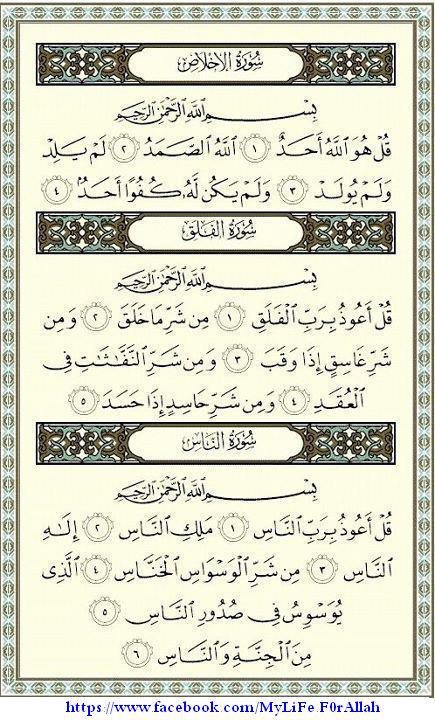 سُورَةُ الإِخْلَاصِ
بِسْمِ ٱللَّهِ ٱلرَّحْمَٰنِ ٱلرَّحِيمِ
قُلْ هُوَ ٱللَّهُ أَحَدٌ ١ ٱللَّهُ ٱلصَّمَدُ ٢ لَمْ يَلِدْ
وَلَمْ يُولَدْ ٣ وَلَمْ يَكُن لَّهُۥ كُفُوًا أَحَدٌۢ ٤
سُورَةُ الفَلَقِ
بِسْمِ ٱللَّهِ ٱلرَّحْمَٰنِ ٱلرَّحِيمِ
قُلْ أَعُوذُ بِرَبِّ ٱلْفَلَقِ ١ مِن شَرِّ مَا خَلَقَ ٢ وَمِن
شَرِّ غَاسِقٍ إِذَا وَقَبَ ٣ وَمِن شَرِّ ٱلنَّفَّٰثَٰتِ فِى
ٱلْعُقَدِ ٤ وَمِن شَرِّ حَاسِدٍ إِذَا حَسَدَ ٥
سُورَةُ النَّاسِ
بِسْمِ ٱللَّهِ ٱلرَّحْمَٰنِ ٱلرَّحِيمِ
قُلْ أَعُوذُ بِرَبِّ ٱلنَّاسِ ١ مَلِكِ ٱلنَّاسِ ٢ إِلَٰهِ
ٱلنَّاسِ ٣ مِن شَرِّ ٱلْوَسْوَاسِ ٱلْخَنَّاسِ ٤ ٱلَّذِى
يُوَسْوِسُ فِى صُدُورِ ٱلنَّاسِ ٥
مِنَ ٱلْجِنَّةِ وَٱلنَّاسِ ٦
https://www.facebook.com/MyLiFe.F0rAllah